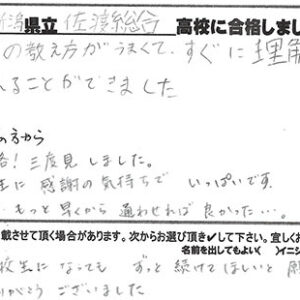 潟県立 佐渡総合 高校に合格しまし
の教え方がうまくて、すぐに理解
れることができました
の方から
格！三度見しました。
生に感謝の気持ちで いっぱいです。
もっと早くから 通わせれば良かった…。
載させて頂く場合があります。次からお選び頂き✓して下さい。宜しくお
名前を出してもよい( )イニシ
校生になっても ずっと続けてほしいと
がとうございました